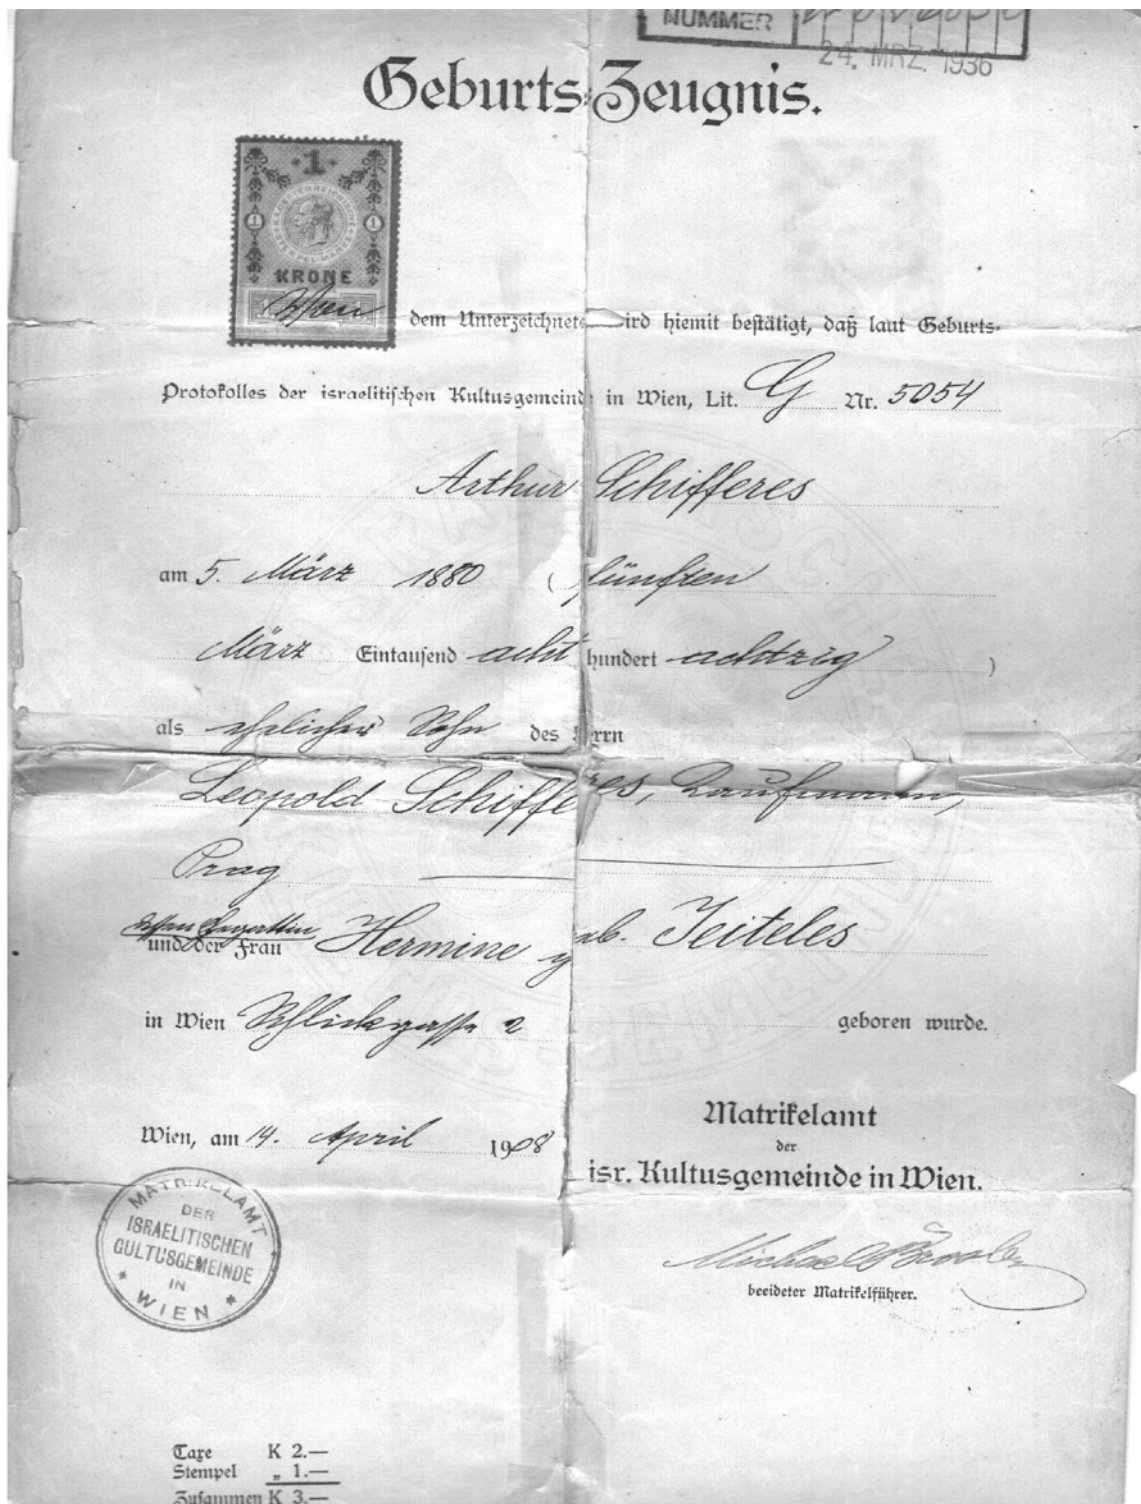 NUMMER
24. MRZ. 1936
Geburts-Zeugnis.
1
1 1
KRONE
Wien
dem Unterzeichnete wird hiemit bestätigt, daß laut Geburts-
Protokolles der israelitischen Kultusgemeinde in Wien, Lit. G Nr. 5054
Arthur Schifferes
am 5. März 1880 ( fünften
März Eintausend acht hundert achtzig )
als ehelicher Sohn des Herrn
Leopold Schifferes, Kaufmann,
Prag
dessen Ehegattin
und der Frau Hermine geb. Jeiteles
in Wien Schlickgasse 2 geboren wurde.
Wien, am 14. April 1908
Matrikelamt
der
isr. Kultusgemeinde in Wien.
MATRIKELAMT
DER
ISRAELITISCHEN
CULTUSGEMEINDE
IN
* WIEN *
Michael
beeideter Matrikelführer.
Taxe K 2.—
Stempel „ 1.—
Zusammen K 3.—